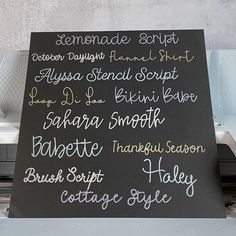 Lemonade Script
October Daylight Flannel Shirt
Alyssa Stencil Script
Loop Di Loo Bikini Babe
Sahara Smooth
Babette Thankful Season
Brush Script Haley
Cottage Style